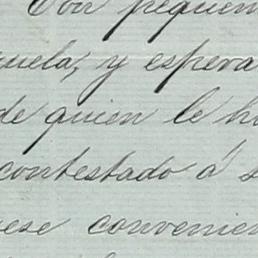 Con pequeñ
uela, y espera
de quien le h
contestado á s
ese convenien